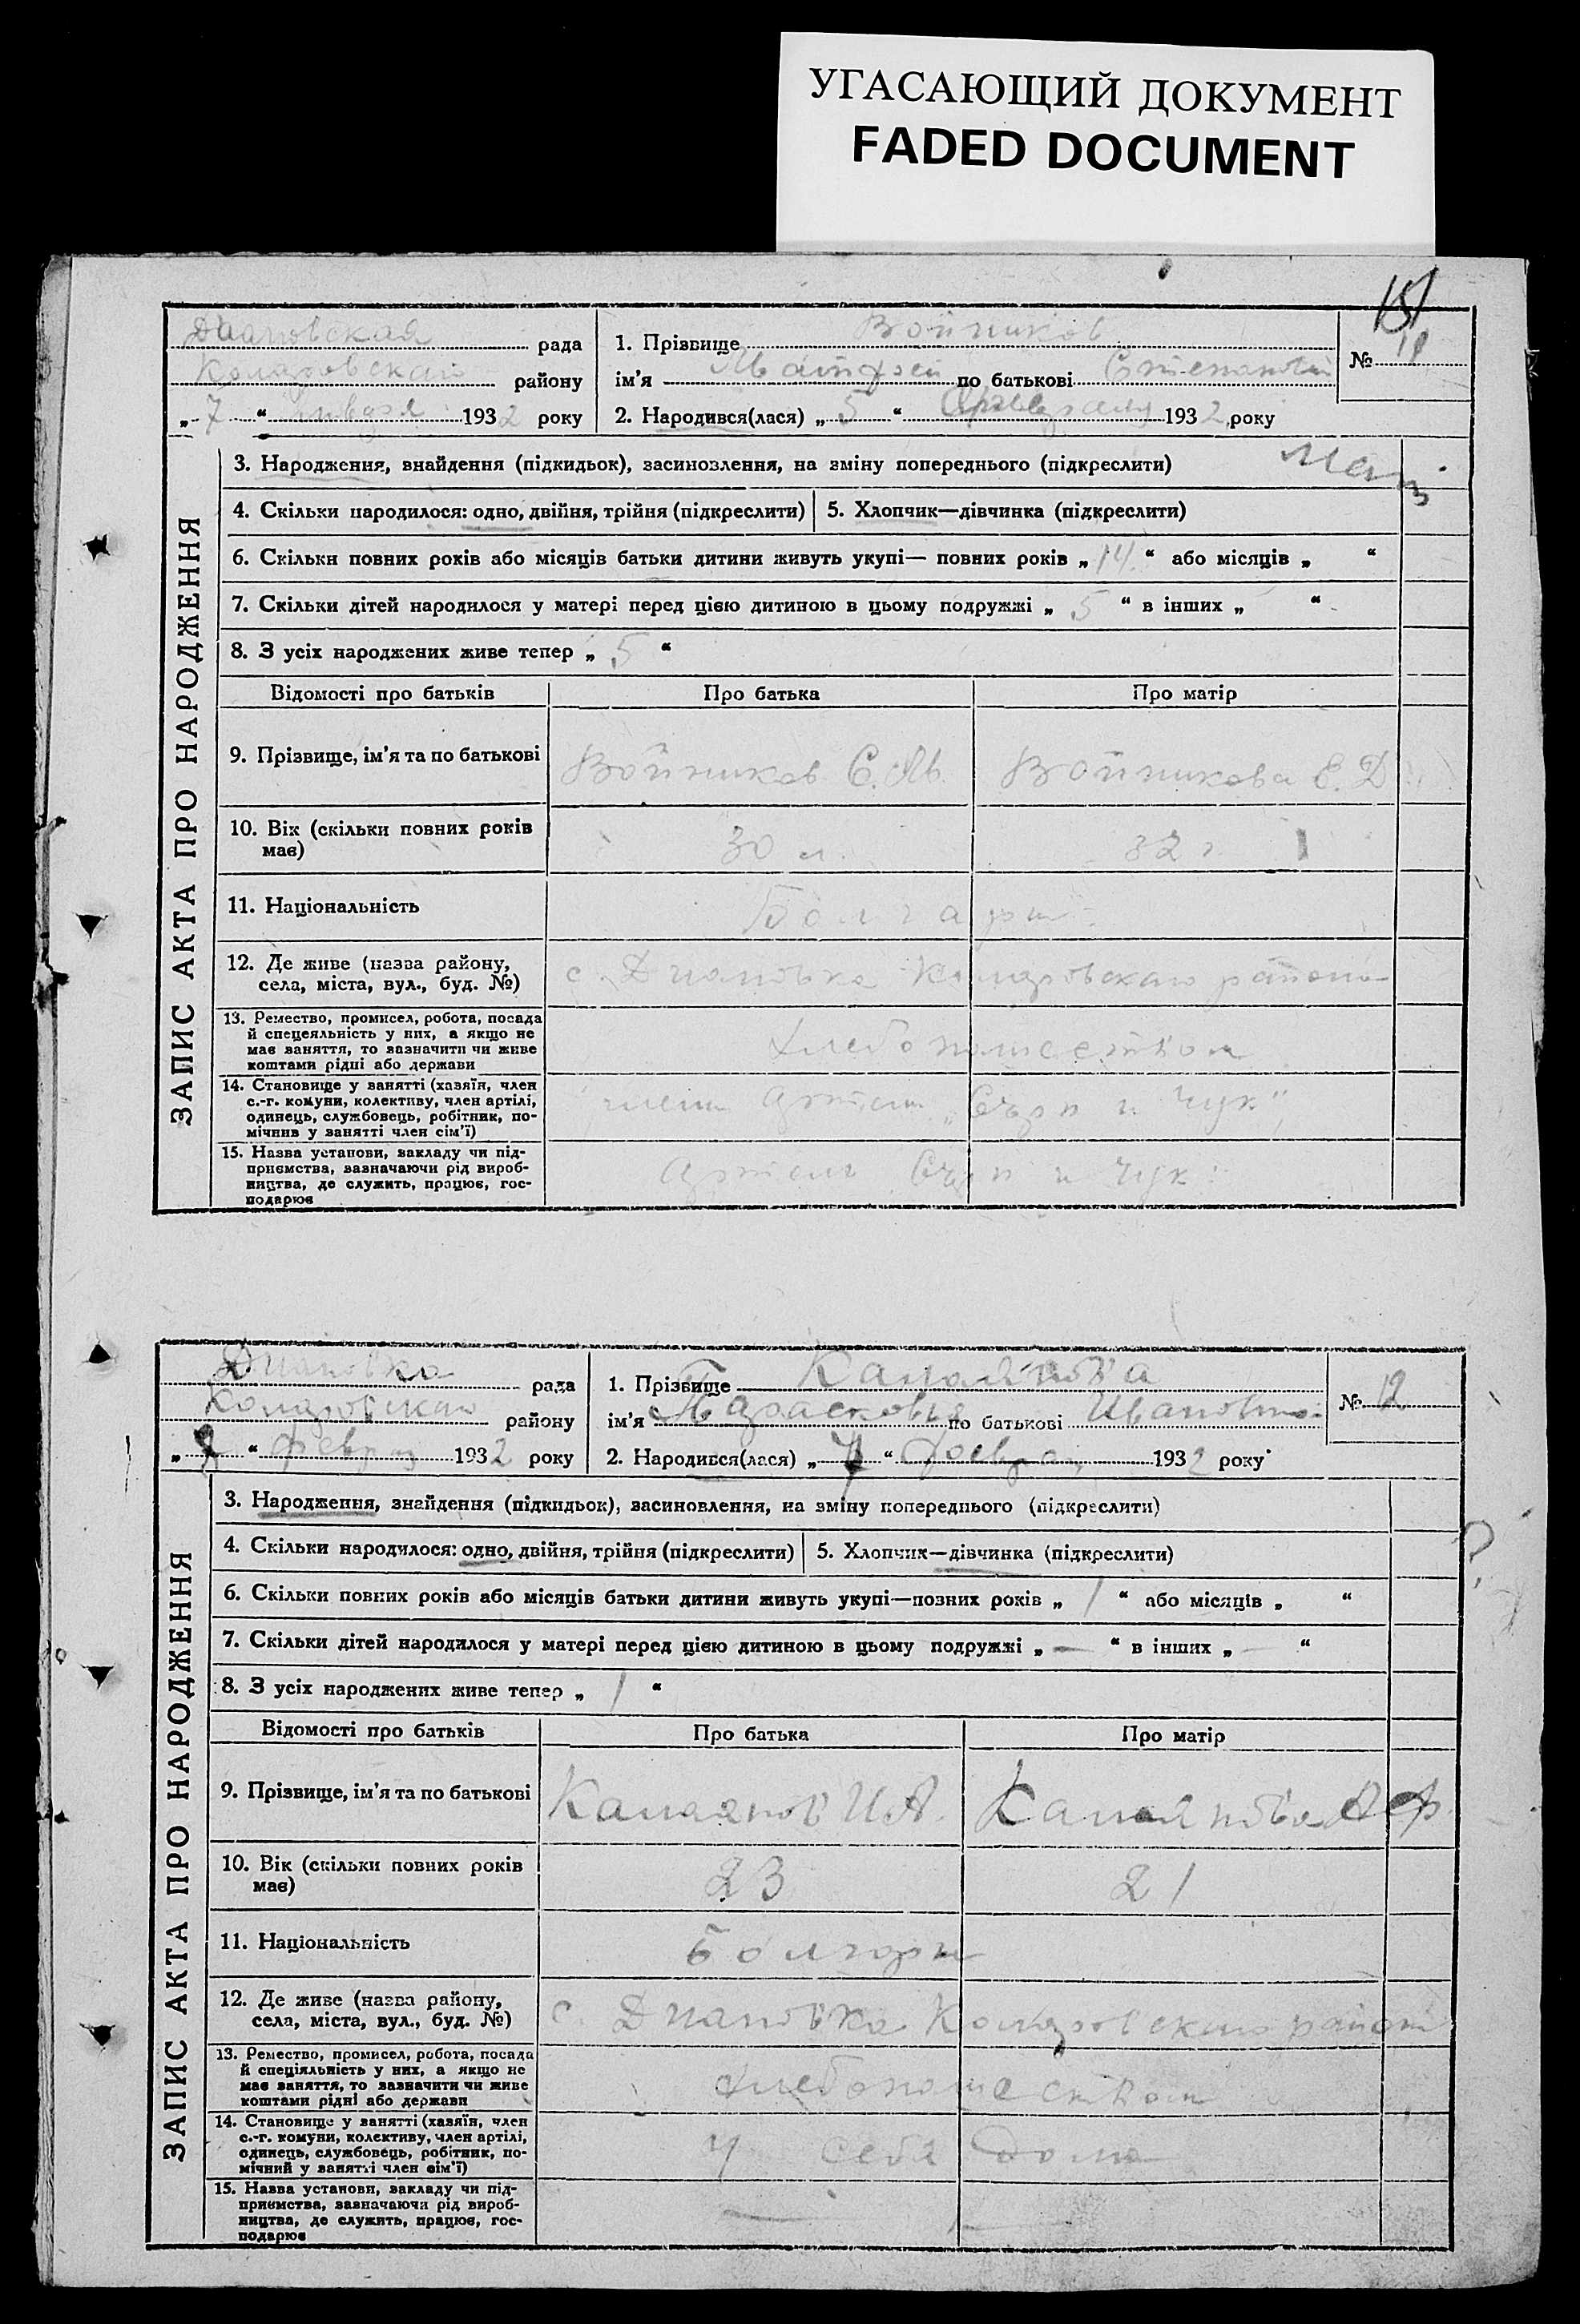 УГАСАЮЩИЙ ДОКУМЕНТ
FADED DOCUMENT
151
Диановская рада
району
„ 7 “ 1932 року
1. Прізвище Войников
ім'я Матфей по батькові Степанович
2. Народився(лася) „ 5 “ 1932 року
№ 11
ЗАПИС АКТА ПРО НАРОДЖЕННЯ
3. Народження, знайдення (підкидьок), засиновлення, на зміну попереднього (підкреслити)
4. Скільки народилося: одно, двійня, трійня (підкреслити) 5. Хлопчик—дівчинка (підкреслити)
6. Скільки повних років або місяців батьки дитини живуть укупі— повних років „ 14 “ або місяців „ “
7. Скільки дітей народилося у матері перед цією дитиною в цьому подружжі „ 5 “ в інших „ “
8. З усіх народжених живе тепер „ 5 “
Відомості про батьків Про батька Про матір
9. Прізвище, ім'я та по батькові Войников С. М. Войникова Е. Д
10. Вік (скільки повних років має) 30 л. 32 г.
11. Національність Болгари
12. Де живе (назва району,
села, міста, вул., буд. №) с. Диановка района
13. Ремество, промисел, робота, посада
й спецеяльність у них, а якщо не
має заняття, то зазначити чи живе
коштами рідні або держави
Хлебопашеством
14. Становище у занятті (хазяїн, член
с.-г. комуни, колективу, член артілі,
одинець, службовець, робітник, по-
мічник у занятті член сім'ї)
член Артели „Серп и Чук“
15. Назва установи, закладу чи під-
приємства, зазначаючи рід вироб-
ництва, де служить, працює, гос-
подарює
Артель Серп и Чук
Диановка рада
району
„ “ 1932 року
1. Прізвище
ім'я Парасковья по батькові Ивановна
2. Народився(лася) „ 7 “ 1932 року
№ 12
ЗАПИС АКТА ПРО НАРОДЖЕННЯ
3. Народження, знайдення (підкидьок), засиновлення, на зміну попереднього (підкреслити)
4. Скільки народилося: одно, двійня, трійня (підкреслити) 5. Хлопчик—дівчинка (підкреслити)
6. Скільки повних років або місяців батьки дитини живуть укупі—повних років „ 1 “ або місяців „ “
7. Скільки дітей народилося у матері перед цією дитиною в цьому подружжі „ — “ в інших „ — “
8. З усіх народжених живе тепер „ 1 “
Відомості про батьків Про батька Про матір
9. Прізвище, ім'я та по батькові И. А.
10. Вік (скільки повних років
має) 23 21
11. Національність Болгари
12. Де живе (назва району,
села, міста, вул., буд. №) с. Диановка
13. Ремество, промисел, робота, посада
й спеціяльність у них, а якщо не
має заняття, то зазначити чи живе
коштами рідні або держави
Хлебопашеством
14. Становище у занятті (хазяїн, член
с.-г. комуни, колективу, член артілі,
одинець, службовець, робітник, по-
мічний у занятті член сім'ї)
У себя дома
15. Назва установи, закладу чи під-
приємства, зазначаючи рід вироб-
ництва, де служить, працює, гос-
подарює